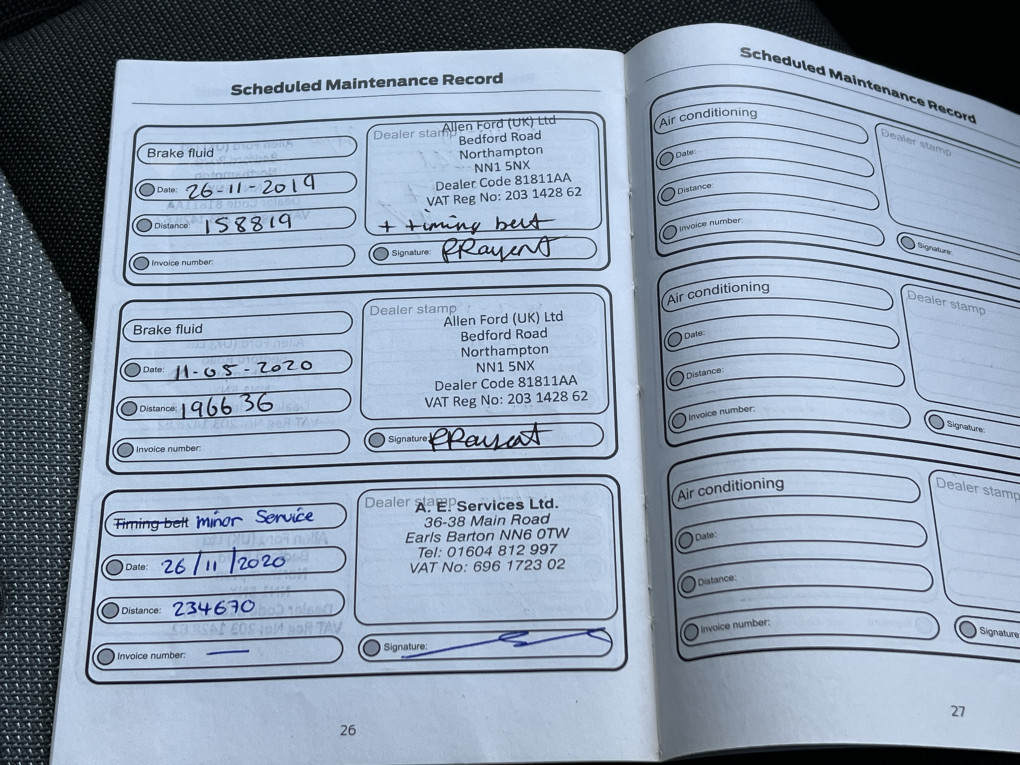 Scheduled Maintenance Record
Brake fluid
Date: 26-11-2019
Distance: 158819
Invoice number:
Dealer stamp
Allen Ford (UK) Ltd
Bedford Road
Northampton
NN1 5NX
Dealer Code 81811AA
VAT Reg No: 203 1428 62
+ timing belt
Signature:
Brake fluid
Date: 11-05-2020
Distance: 196636
Invoice number:
Dealer stamp
Allen Ford (UK) Ltd
Bedford Road
Northampton
NN1 5NX
Dealer Code 81811AA
VAT Reg No: 203 1428 62
Signature:
Timing belt minor Service
Date: 26/11/2020
Distance: 234670
Invoice number: —
Dealer stamp
A. E. Services Ltd.
36-38 Main Road
Earls Barton NN6 0TW
Tel: 01604 812 997
VAT No: 696 1723 02
Signature:
26
Scheduled Maintenance Record
Air conditioning
Date:
Distance:
Invoice number:
Dealer stamp
Signature:
Air conditioning
Date:
Distance:
Invoice number:
Dealer stamp
Signature:
Air conditioning
Date:
Distance:
Invoice number:
Dealer stamp
Signature
27